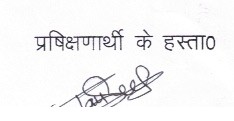 प्रषिक्षणार्थी के हस्ता0